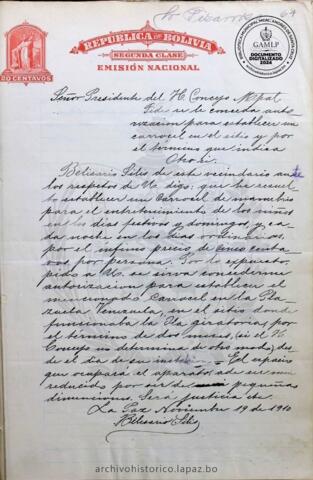 64
REPÚBLICA DE BOLIVIA
SEGUNDA CLASE
EMISIÓN NACIONAL
20 CENTAVOS
GAMLP
DOCUMENTO
DIGITALIZADO
2024
Señor Presidente del H. Concejo Mpal.
Pide se le conceda auto-
rización para establecer un
carrocel, en el sitio y por
el término que indica
Otro sí.
Belisario Siles de este vecindario ante
los respetos de Ud. digo: que he resuel-
to establecer un Carrocel de mambrio
para el entretenimiento de los niños
en los dias festivos y domingos, y ca-
da noche en los dias ordinarios,
por el ínfimo precio de cinco centa-
vos por persona. Por lo expuesto,
pido a U. se sirva concederme
autorización para establecer el
mencionado Carrocel en la Pla-
zuela Venezuela, en el sitio donde
funcionaba la Ola giratoria, por
el término de dos meses, (si el H.
Concejo no determina de otro modo) des-
de el dia de su
El espacio
que ocupará el aparato, es
reducido por ser de pequeñas
dimenciones. Será justicia
La Paz Noviembre 19 de 1910
Belisario Siles
archivohistorico.lapaz.bo